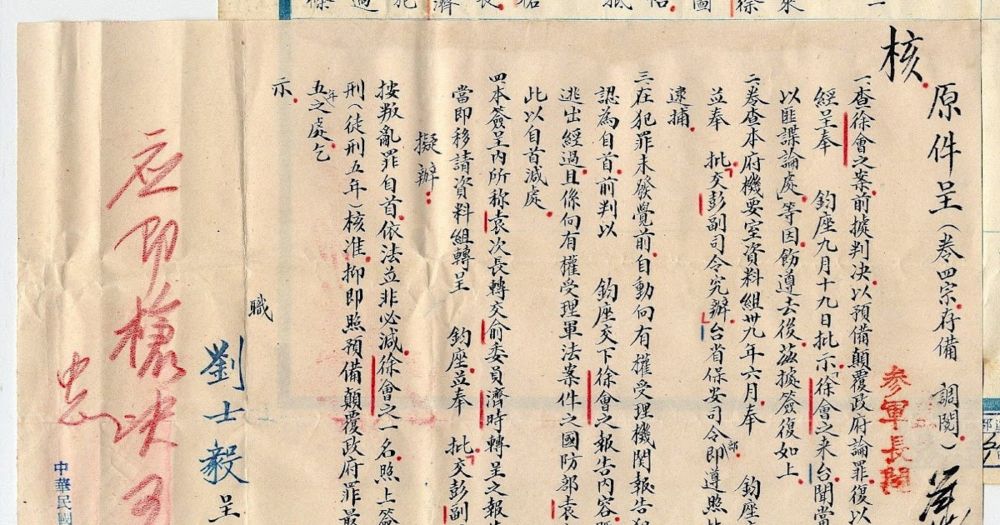 核
原件呈(卷四宗存備 調閱)
參軍長閱
一、查徐會之案前據判決以預備顛覆政府論罪復以
經呈奉 鈞座九月十九日批示「徐會之來台聞當
以匪諜論處」等因飭遵去後茲據簽復如上
二、卷查本府機要室資料組卅九年六月奉 鈞座
並奉 批交彭副司令究辦台省保安司令部即遵照
逮捕
三、在犯罪未發覺前自動向有權受理機関報告犯
認為自首前判以 鈞座交下徐會之報告內容
逃出經過且係向有權受理軍法案件之國防部袁
此以自首減處
四、本簽呈內所称袁次長轉交俞委員濟時轉呈之報告
當即移請資料組轉呈 鈞座並奉 批交彭副
擬辦:
按叛亂罪自首依法並非必減徐會之一名照上簽
刑(徒刑五年)核准抑即照預備顛覆政府罪最
五年之處乞
示
職
劉士毅呈
應即槍決可
中華民國